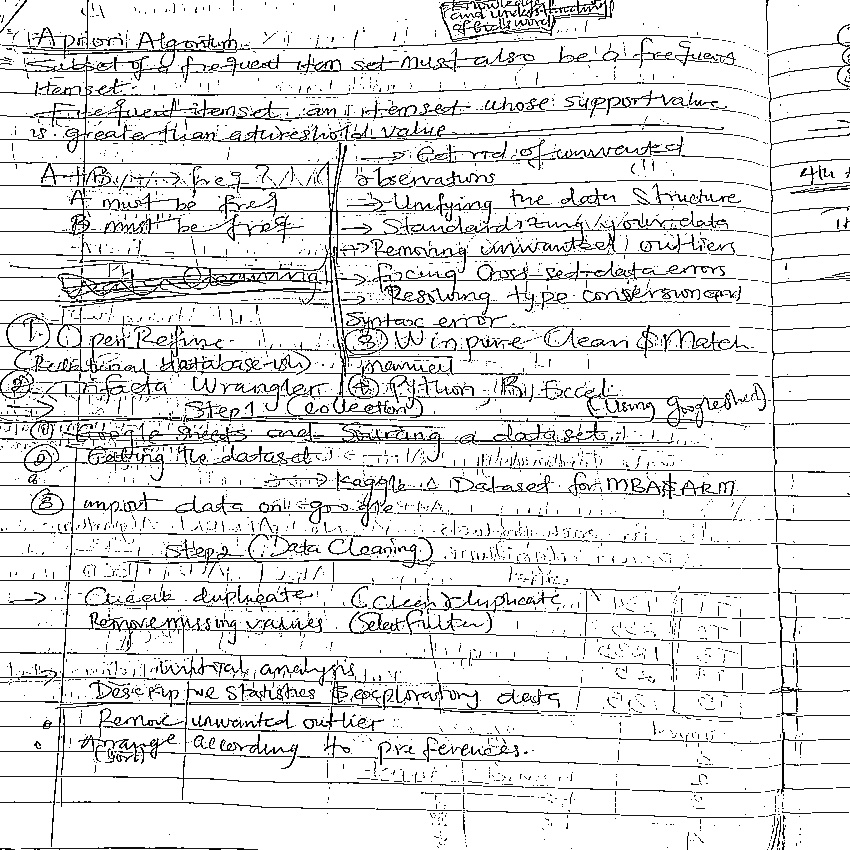 Knowledge
and understanding
of each word
Apriori Algorithm
Subset of a frequent item set must also be a frequent
itemset.
Frequent itemset: an itemset whose support value
is greater than a threshold value
A must be freq
B must be freq
→ Get rid of unwanted
observations
→ Unifying the data structure
→ Standardizing your data
→ Removing unwanted outliers
→ Fixing Cross set-data errors
→ Resolving type conversion and
Syntax error
Data Cleaning
① OpenRefine
(Relational database-ish)
② Trifacta Wrangler
③ Winpure Clean & Match
manual
④ Python, R, Excel
Step 1 (Collection) (Using google sheet)
① Google sheets and Sourcing a dataset
② Getting the dataset
→ Kaggle Dataset for MBA & ARM
③ import data on google
Step 2 (Data Cleaning)
→ Check duplicate (clean duplicate
Remove missing values (Select filter)
→ initial analysis
Descriptive statistics & exploratory data
• Remove unwanted outlier
• Arrange according to preferences.
(sort)
4th